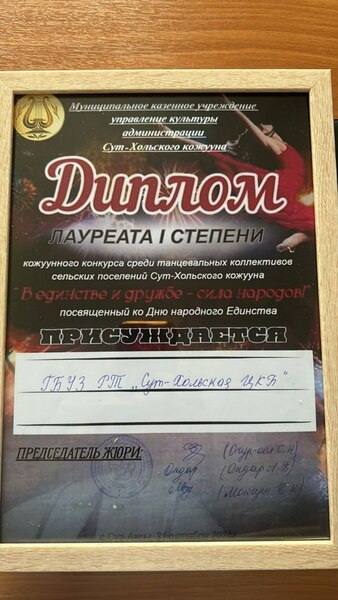 Муниципальное казенное учреждение
управление культуры
администрации
Сут-Хольского кожууна
Диплом
ЛАУРЕАТА I СТЕПЕНИ
кожуунного конкурса среди танцевальных коллективов
сельских поселений Сут-Хольского кожууна
"В единстве и дружбе - сила народов!"
посвященный ко Дню народного Единства
ПРИСУЖДАЕТСЯ
ГБУЗ РТ „Сут-Хольская ЦКБ"
ПРЕДСЕДАТЕЛЬ ЖЮРИ: